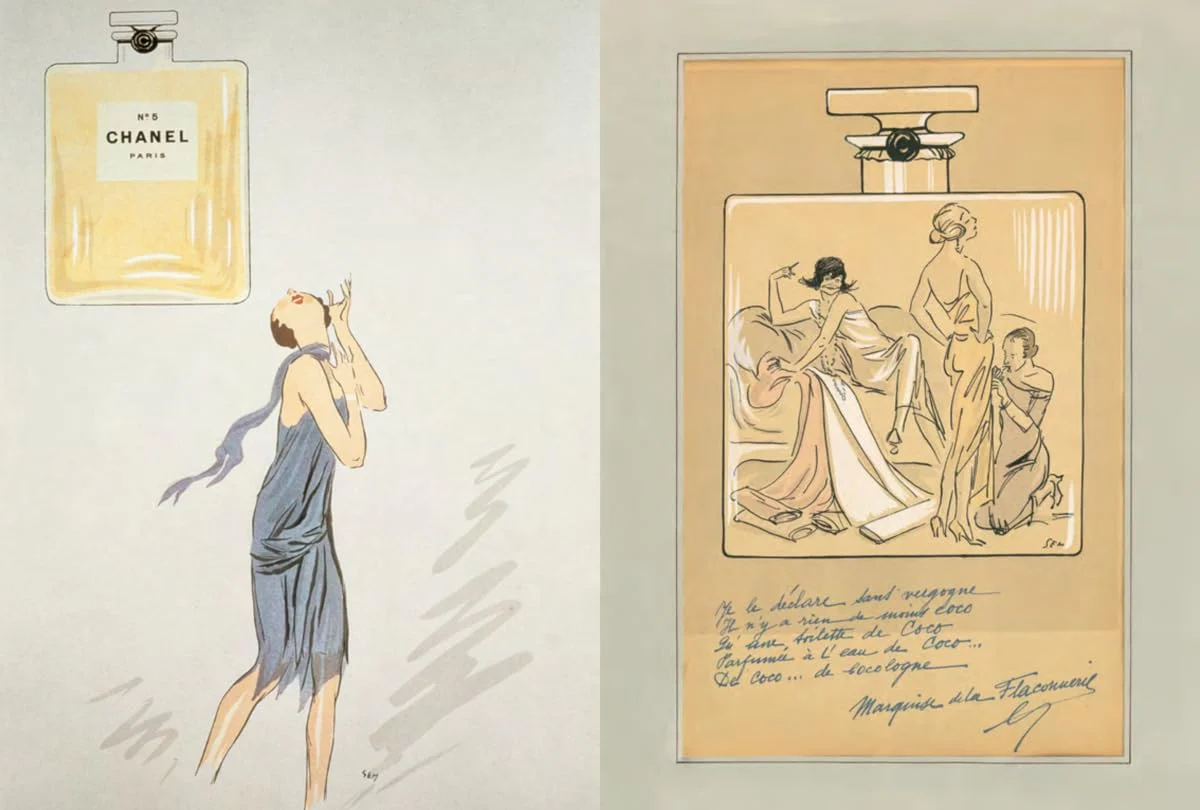 N° 5
CHANEL
PARIS
SEM
SEM
Je le déclare sans vergogne
Il n'y a rien de moins coco
Qu'une toilette de Coco
Parfumée à L'eau de Coco...
De Coco... de Cocologne
Marquise de la Flaconnerie